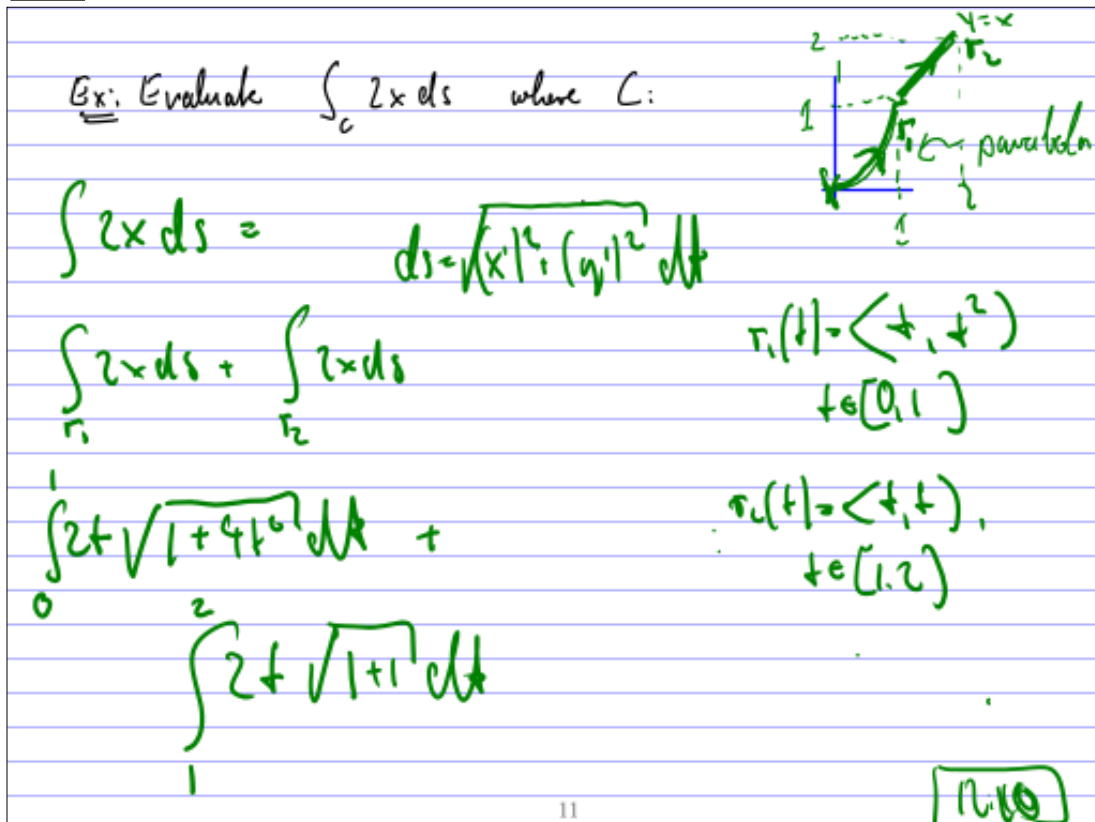 Ex: Evaluate ∫_C 2x ds where C:
2 y=x
r₂
1 r₁ ← parabola
1 2
∫ 2x ds =
ds = √((x')² + (y')²) dt
∫_{r₁} 2x ds + ∫_{r₂} 2x ds
r₁(t) = <t, t²>
t∈[0,1]
∫₀¹ 2t √(1+4t²) dt +
r₂(t) = <t, t>,
t∈[1,2]
∫₁² 2t √(1+1) dt
11